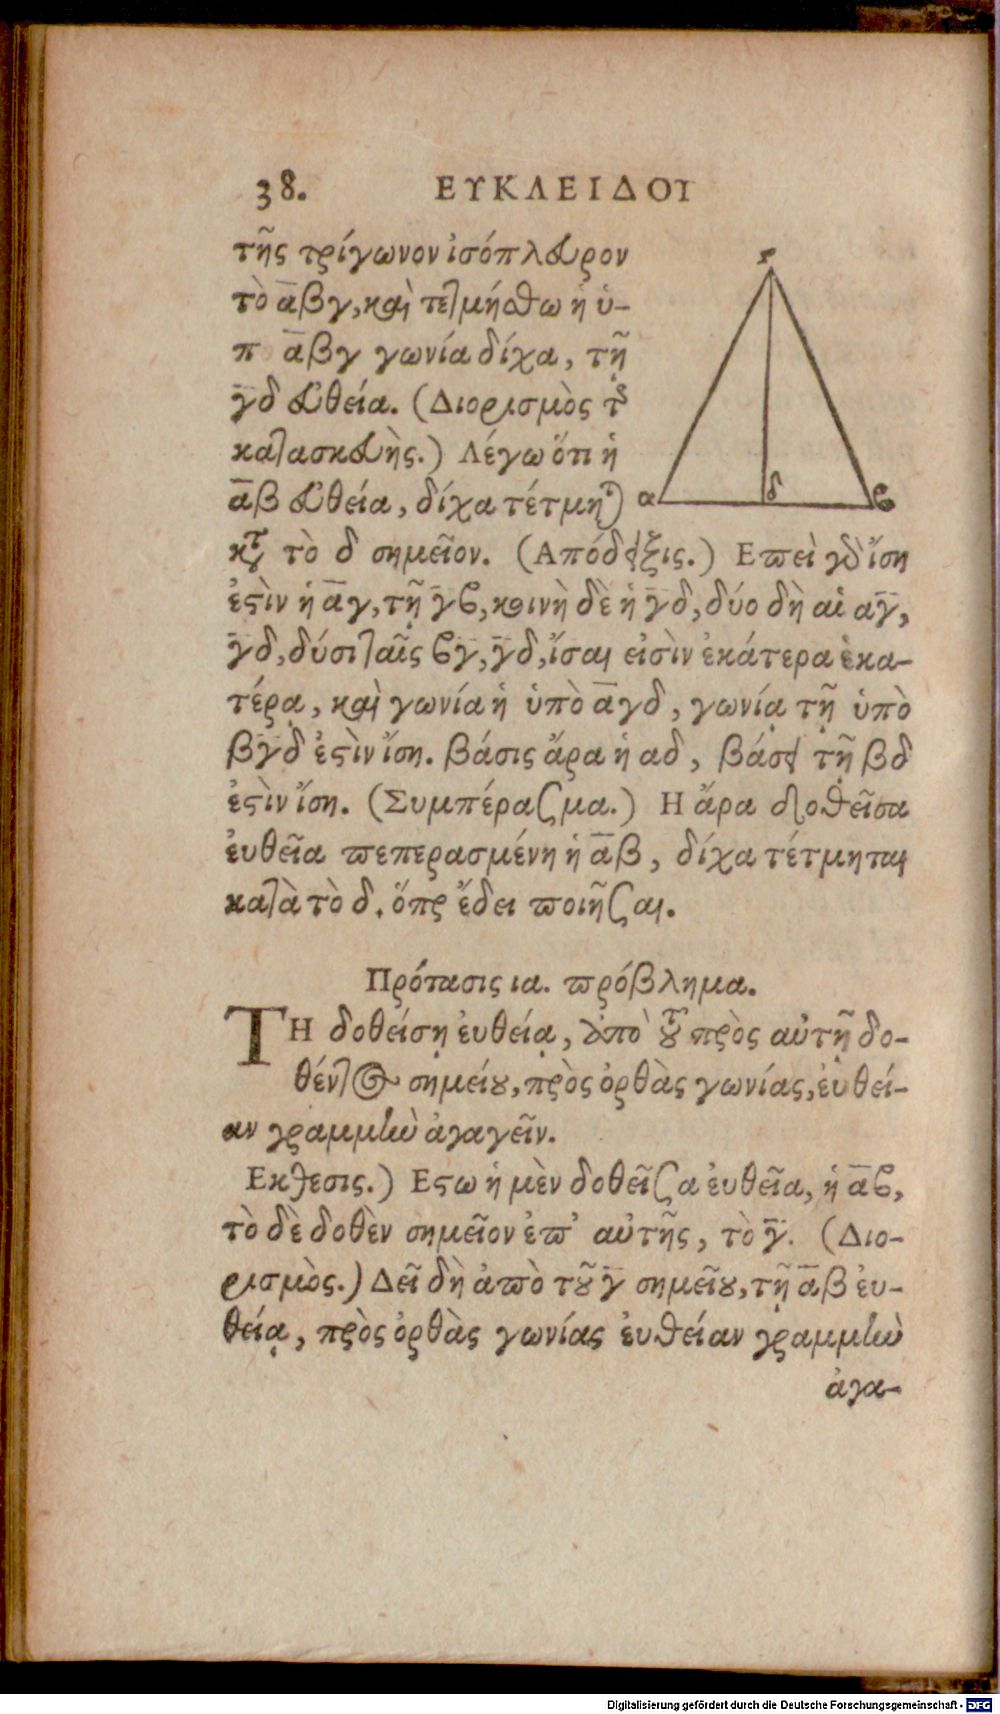 38. ΕΥΚΛΕΙΔΟΥ
τῆς τρίγωνον ἰσόπλευρον
τὸ α̅βγ, καὶ τετμήσθω ἡ ὑ-
π α̅βγ γωνία δίχα, τῇ
γ̅δ εὐθεία. (Διορισμὸς τῆς
κατασκευὴς.) Λέγω ὅτι ἡ
α̅β εὐθεία, δίχα τέτμηται
κατὰ τὸ δ σημεῖον. (Απόδειξις.) Επεὶ γὰρ ἴση
ἐστὶν ἡ α̅γ, τῇ γ̅β, κοινὴ δὲ ἡ γ̅δ, δύο δὴ αἱ αγ̅,
γ̅δ, δύσι ταῖς βγ̅, γ̅δ, ἴσαι εἰσὶν ἑκάτερα ἑκα-
τέρᾳ, καὶ γωνία ἡ ὑπὸ α̅γδ, γωνίᾳ τῇ ὑπὸ
βγ̅δ ἐστὶν ἴση. βάσις ἄρα ἡ αδ, βάσει τῇ βδ
ἐστὶν ἴση. (Συμπέρασμα.) Η ἄρα δοθεῖσα
ἐυθεῖα πεπερασμένη ἡ α̅β, δίχα τέτμηται
κατὰ τὸ δ. ὅπερ ἔδει ποιῆσαι.
Πρότασις ια. πρόβλημα.
ΤΗ δοθείσῃ ἐυθείᾳ, ἀπὸ τοῦ πρὸς αὐτῇ δο-
θέντος σημείου, πρὸς ὀρθὰς γωνίας, ἐυθεί-
αν γραμμὴν ἀγαγεῖν.
Εκθεσις.) Εστω ἡ μὲν δοθεῖσα ἐυθεῖα, ἡ α̅β,
τὸ δὲ δοθὲν σημεῖον ἐπ' αὐτῆς, τὸ γ̅. (Διο-
ρισμὸς.) Δεῖ δὴ ἀπὸ τοῦ γ̅ σημεῖου, τῇ α̅β ἐυ-
θείᾳ, πρὸς ὀρθὰς γωνίας ἐυθείαν γραμμὴν
ἀγα-
γ
α δ β
Digitalisierung gefördert durch die Deutsche Forschungsgemeinschaft - DFG